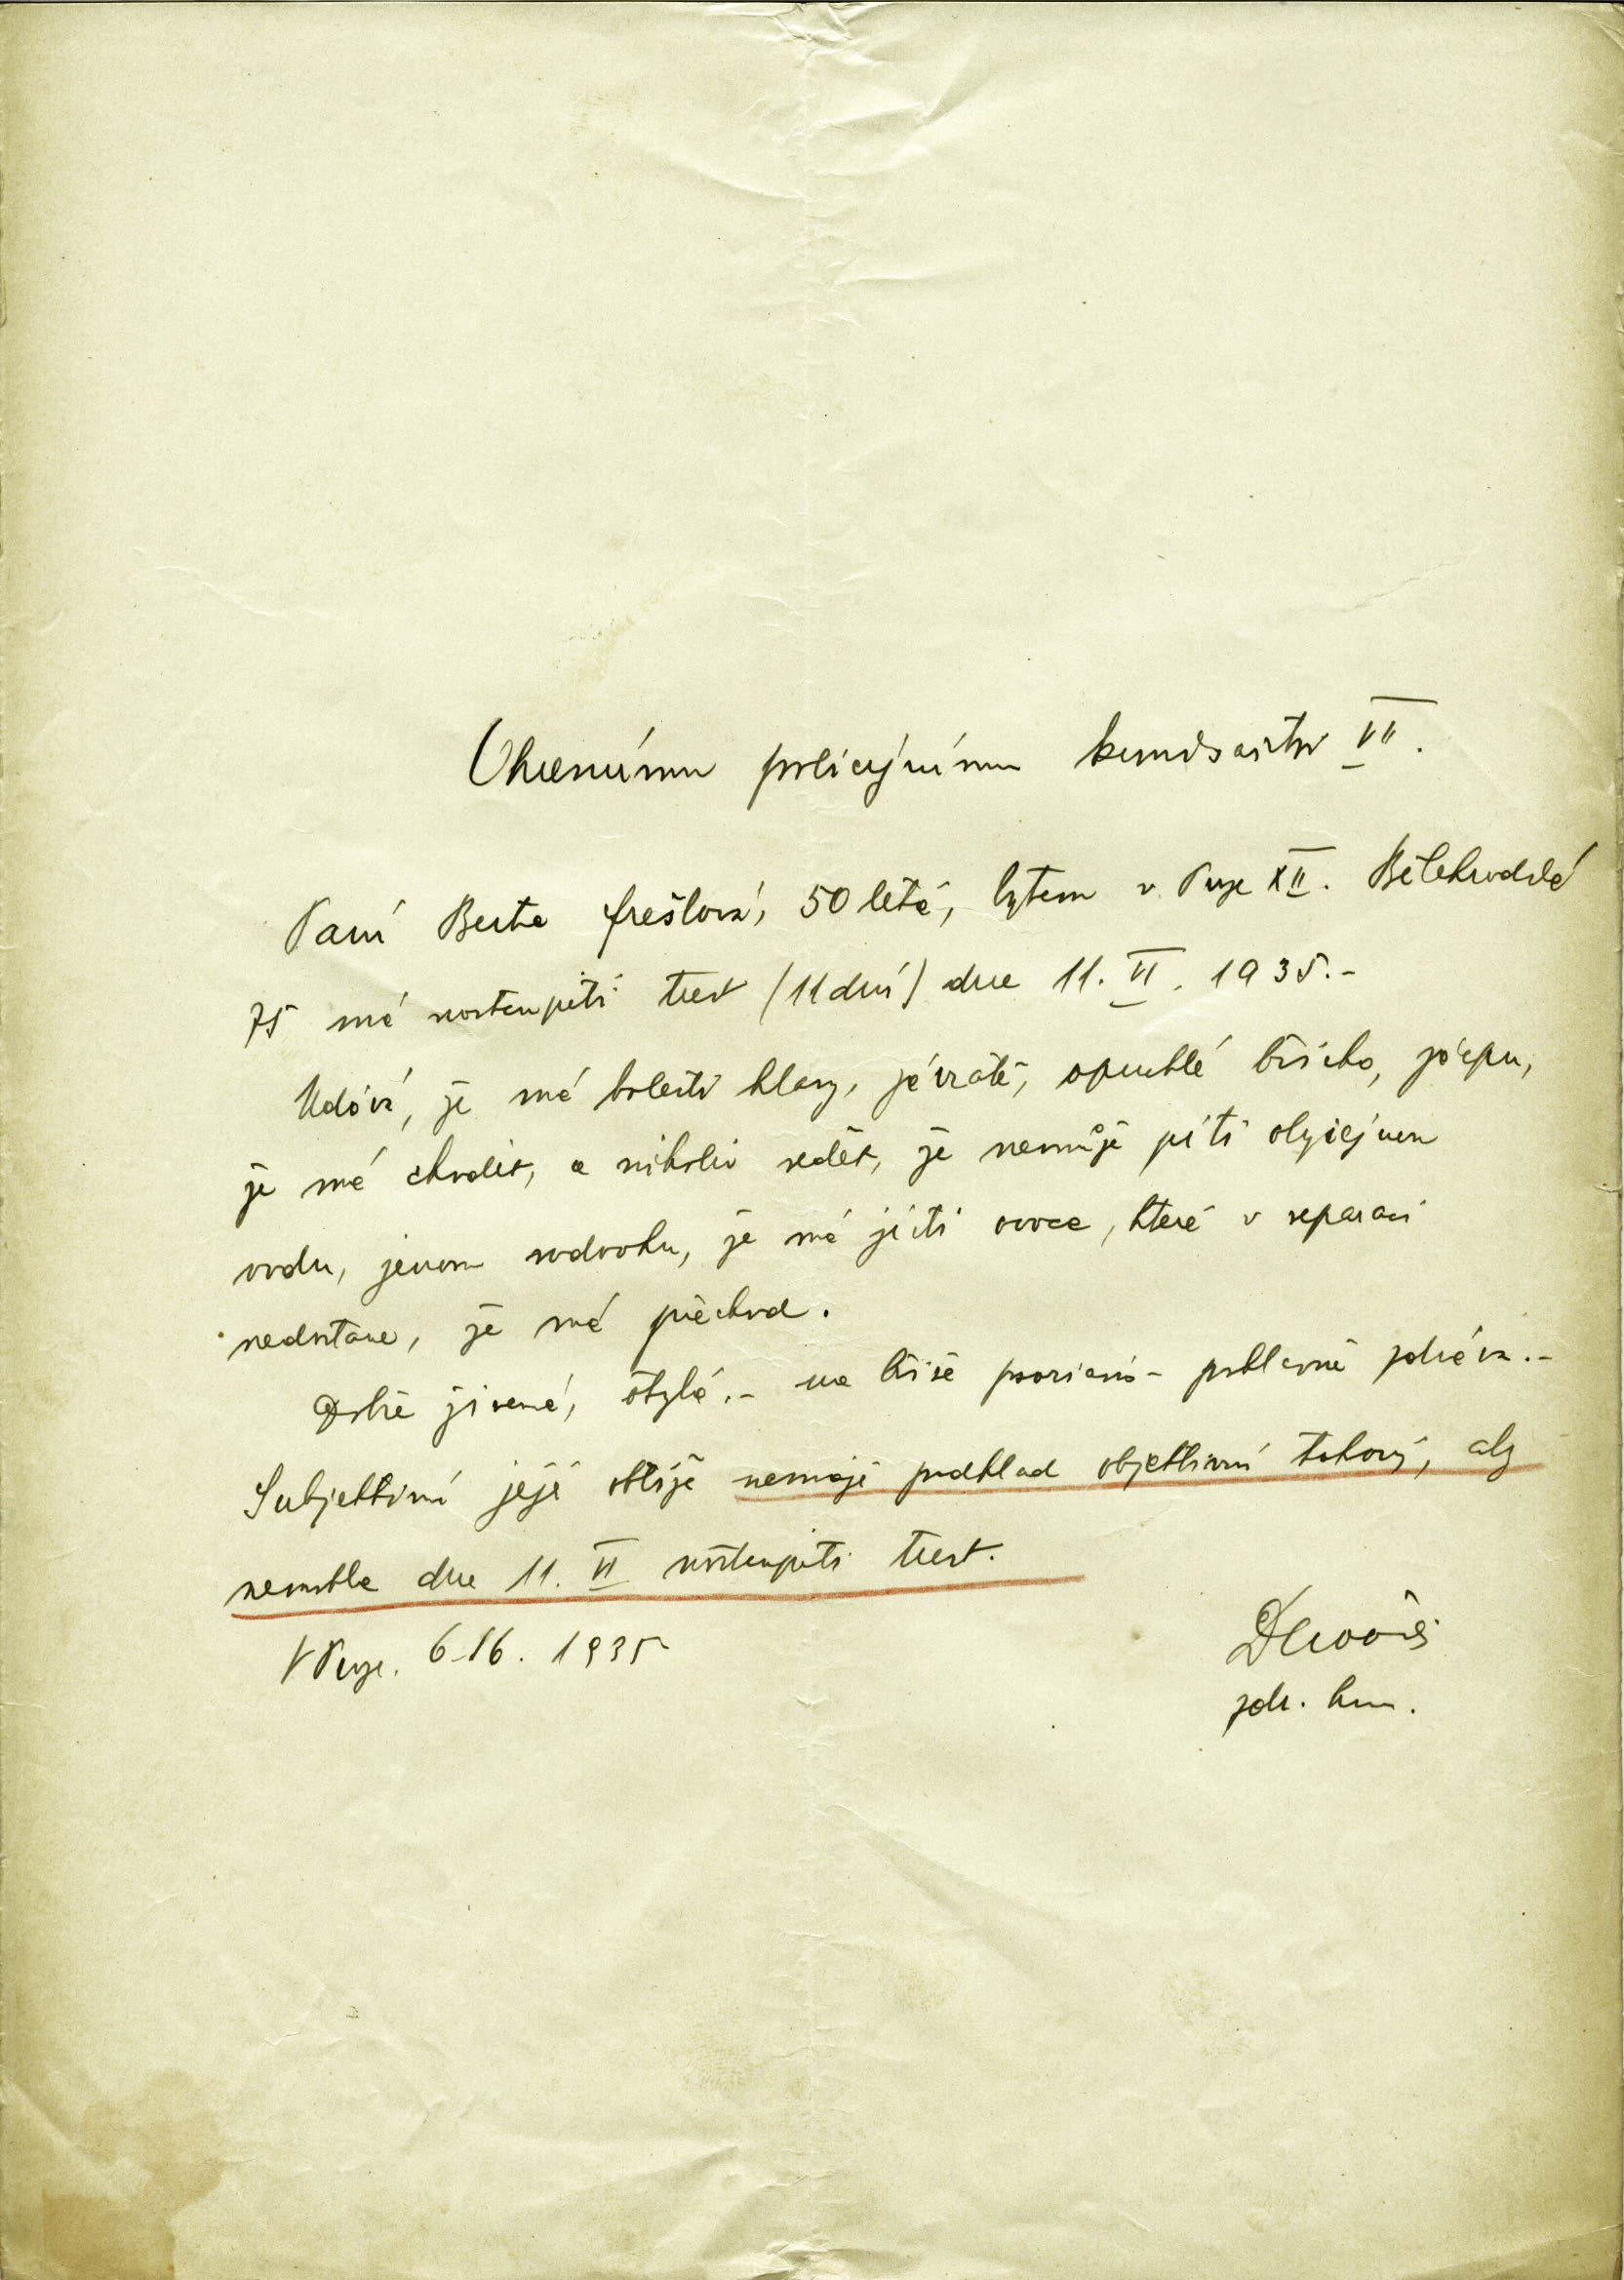 Okresnímu policejnímu komisařství VII.
Paní Berta frešlová, 50 letá, bytem v Praze XII. Bělehradská
75 má nastoupiti trest (11 dní) dne 11. VI. 1935.-
Udává, že má bolesti hlavy, závratě, opuchlé břicho, zácpu,
že má chodit, a nikoliv sedět, že nemůže píti obyčejnou
vodu, jenom sodovku, že má jísti ovoce, které v separaci
nedostane, že má přechod.
Dobře živená, otylá.- na břiše psoriasis - pohlavně zdráva.-
Subjektivní její obtíže nemají podklad objektivní takový, aby
nemohla dne 11. VI nastoupiti trest.
V Praze. 6./6. 1935
zdr. kom.